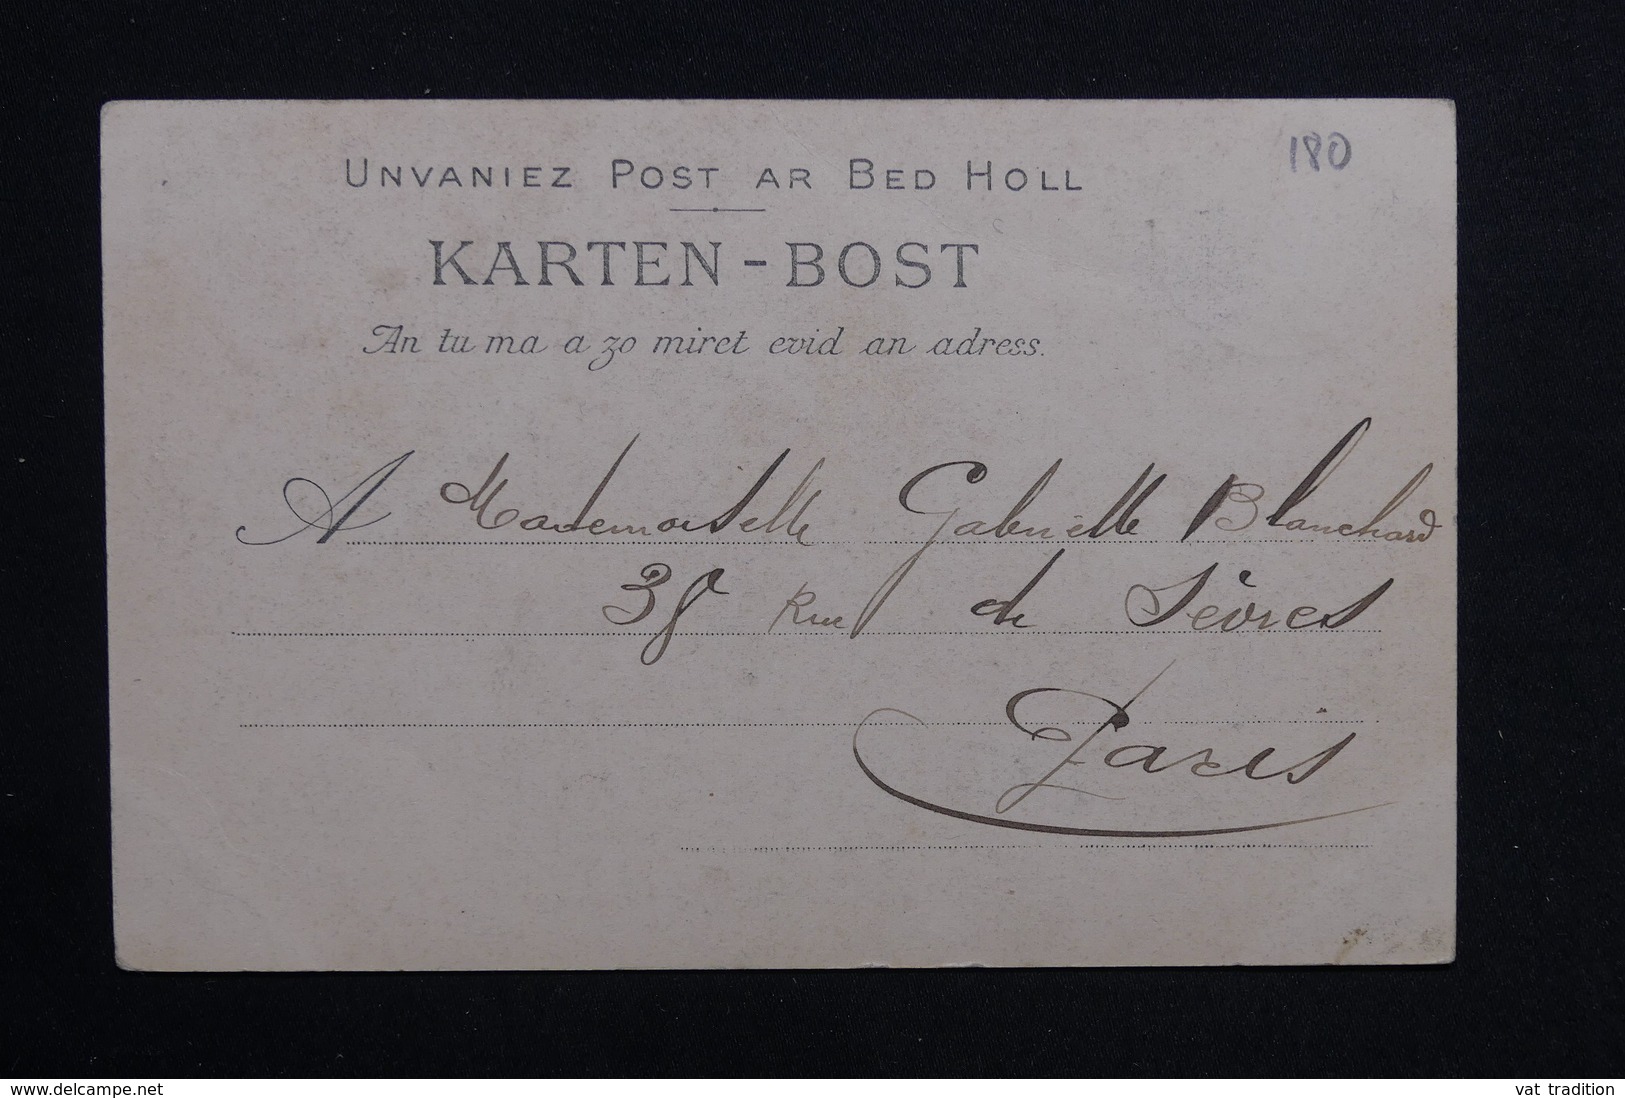 180
UNVANIEZ POST AR BED HOLL
KARTEN-BOST
An tu ma a zo miret evid an adress.
A Mademoiselle Gabrielle Blanchard
38 Rue de Sèvres
Paris
www.delcampe.net
vat tradition